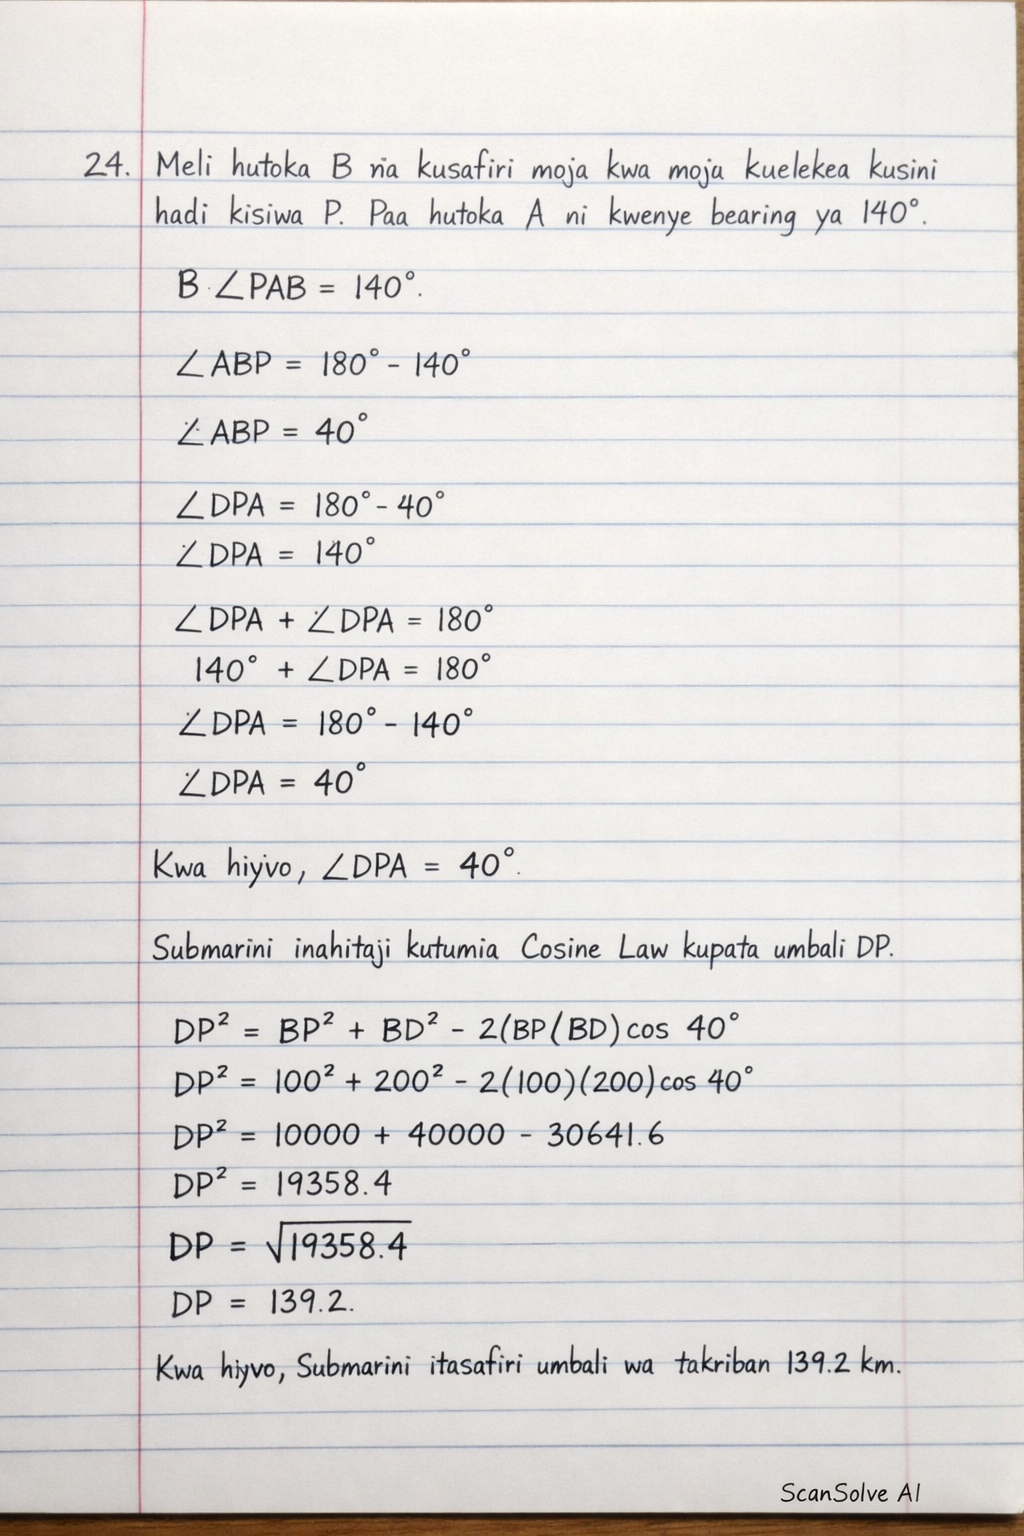 24. Meli hutoka B na kusafiri moja kwa moja kuelekea kusini
hadi kisiwa P. Paa hutoka A ni kwenye bearing ya 140°.
B ∠PAB = 140°.
∠ABP = 180° - 140°
∠ABP = 40°
∠DPA = 180° - 40°
∠DPA = 140°
∠DPA + ∠DPA = 180°
140° + ∠DPA = 180°
∠DPA = 180° - 140°
∠DPA = 40°
Kwa hiyivo, ∠DPA = 40°.
Submarini inahitaji kutumia Cosine Law kupata umbali DP.
DP² = BP² + BD² - 2(BP(BD) cos 40°
DP² = 100² + 200² - 2(100)(200) cos 40°
DP² = 10000 + 40000 - 30641.6
DP² = 19358.4
DP = √19358.4
DP = 139.2.
Kwa hiyvo, Submarini itasafiri umbali wa takriban 139.2 km.
ScanSolve AI